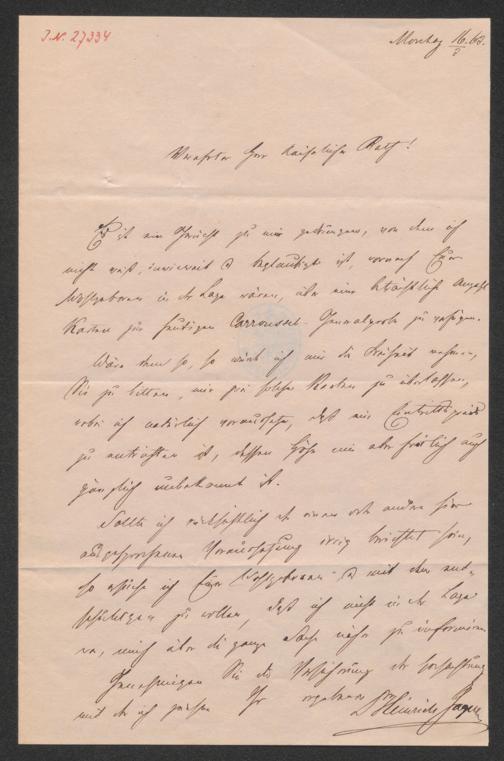 J.N. 27334
Montag 16./3 63.
Verehrter Herr kaiserlicher Rath!
Es ist ein Gerücht zu mir gedrungen, von dem ich
nicht weiß, inwieweit es beglaubigt ist, wornach Euer
Wohlgeboren in der Lage wären, über eine beträchtliche Anzahl
Karten zur heutigen Carroussel-Generalprobe zu verfügen.
Wäre dem so, so würde ich mir die Freiheit nehmen,
Sie zu bitten, mir zwei solche Karten zu überlassen,
wobei ich natürlich voraussetze, daß ein Eintrittspreis
zu entrichten ist, dessen Höhe mir aber freilich auch
gänzlich unbekannt ist.
Sollte ich rücksichtlich der einen oder andern hier
ausgesprochenen Voraussetzung irrig berichtet sein,
so ersuche ich Euer Wohlgeboren es mit dem ent-
schuldigen zu wollen, daß ich nicht in der Lage
war, mich über die ganze Sache näher zu informiren.
Genehmigen Sie die Versicherung der Hochachtung
mit der ich zeichne Ihr ergebener Dr Heinrich Jaques